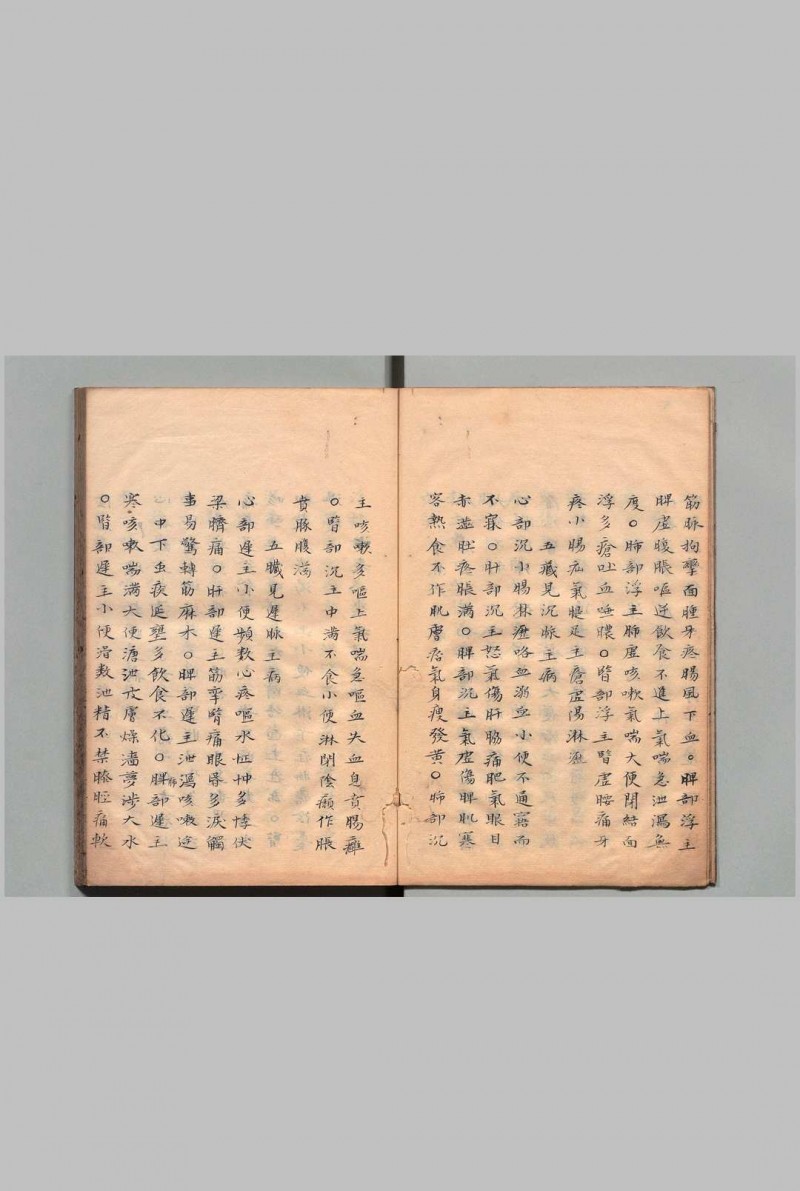 筋脉拘攣面腫牙疼腸風下血〇脾部浮主
脾虛腹脹嘔逆飲食不進上氣喘急泄瀉無
度〇肺部浮主肺虛咳嗽氣喘大便閉結面
浮多瘡吐血唾膿〇腎部浮主腎虛腰痛牙
疼小腸疝氣腿足生瘡虛陽淋瀝
五藏見沉脉主病
心部沉小腸淋瀝咯血溺血小便不通寤而
不寐〇肝部沉主怒氣傷肝脇痛肥氣眼目
赤澁肚疼脹滿〇脾部沉主氣虛傷脾肌寒
客熱食不作肌膚痞氣身瘦發黃〇肺部沉
主咳嗽多嘔上氣喘急嘔血失血息賁腸癰
〇腎部沉主中滿不食小便淋閉陰癩作脹
賁豚腹滿
五臟見遲脉主病
心部遲主小便頻数心疼嘔水怔忡多悸伏
梁臍痛〇肝部遲主筋攣臂痛眼昏多淚觸
事易驚轉筋麻木〇脾部遲主泄瀉咳嗽
中下虫疾延壅多飲食不化〇肺部遲主
寒咳嗽喘滿大便溏泄皮膚燥濇夢涉大水
〇腎部遲主小便滑数泄精不禁膝脛痛軟